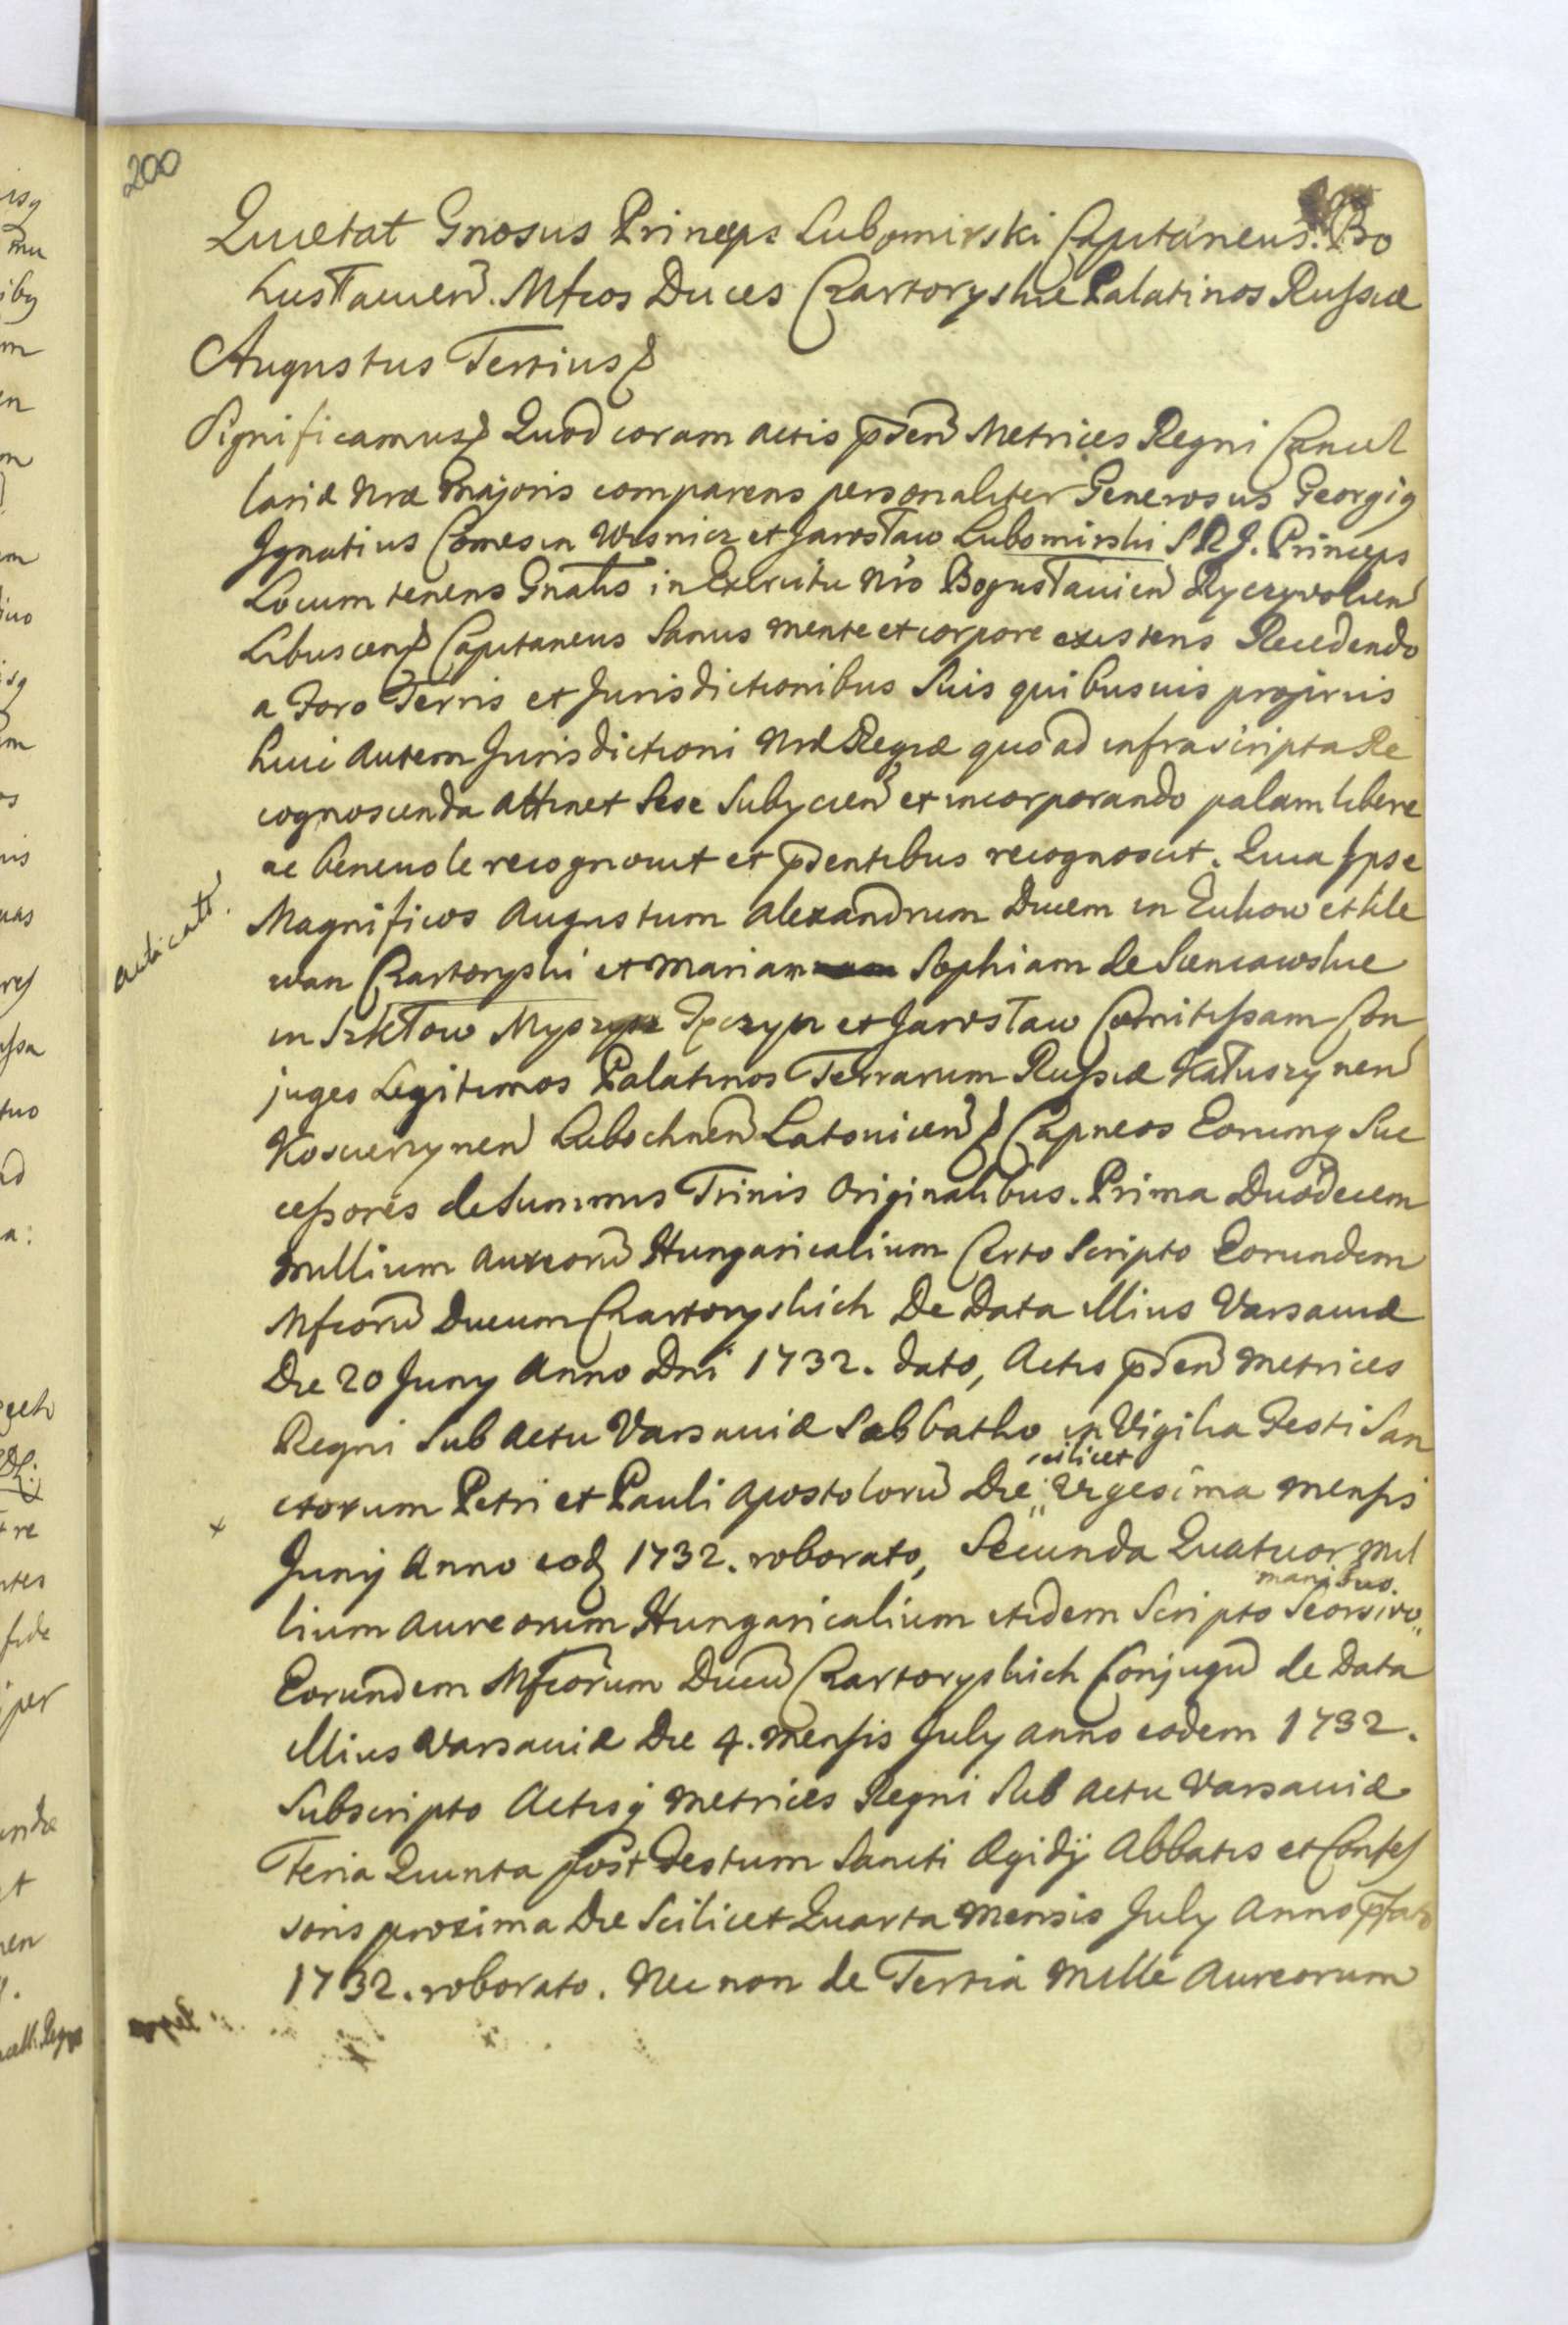 200
Quietat Gnosus Princeps Lubomirski Capitaneus Bo
husłauien. Mfcos Duces Czartoryskie Palatinos Russiæ
Augustus Tertius
Significamus Quod coram actis pñden Metrices Regni Cancel
lariæ Nræ Majoris comparens personaliter Generosus Georgiq
Ignatius Comes in Wisnicz et Jarosław Lubomirski S R J. Princeps
Locum tenens Gnalis in Exercitu Nro Bogusłauien Ryczywolien
Libuscen Capitaneus Sanus mente et corpore existens Recedendo
a Foro Terris et Jurisdictionibus Suis quibusuis proprijs
huic autem Jurisdictioni Nræ Regiæ quo ad infrascripta Re
cognoscenda attinet Sese Subycien et incorporando palam libere
ac beneuole recognouit et pñdentibus recognoscit. Quia Ipse
Magnificos Augustum Alexandrum Ducem in Zukow et Kle
wan Czartoryski et Mariam Sophiam de Sieniawskie
in Szkłow Myszyn et Jarosław Comitissam Con
juges Legitimos Palatinos Terrarum Russiæ Kałuszynen
Koscierzynen Lubochnen Latouicen Capneos Eorumq Suc
cessores de Summis Trinis Originalibus. Prima Duodecem
millium aureoru Hungaricalium Certo Scripto Eorundem
Mfcoru Ducum Czartoryskich De Data illius Varsauiæ
Die 20 Juny Anno Dni 1732. dato, Actis pñden Metrices
Regni Sub actu Varsauiæ Sabbatho in Vigilia Festi San
scilicet
ctorum Petri et Pauli Apostoloru Die Vigesima mensis
Junij Anno eodq 1732. roborato, Secunda Quatuor mil
manibus
lium aureorum Hungaricalium itidem Scripto Seorsiuo
Eorundem Mfcorum Ducu Czartoryskich Conjugu de Data
illius Varsauiæ Die 4. mensis July anno eodem 1732.
Subscripto Actisq Metrices Regni Sub actu Varsauiæ
Feria Quinta post Festum Sancti Ægidij Abbatis et Confes
soris proxima Die Scilicet Quarta Mensis July Anno pfato
1732. roborato. Nec non de Tertia Mille Aureorum